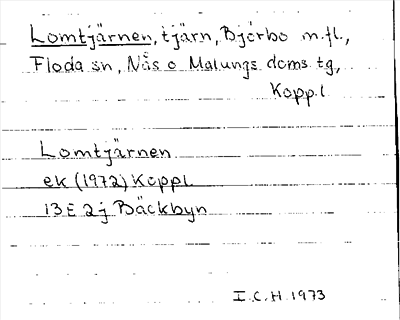 Lomtjärnen, tjärn, Björbo m.fl.,
Floda sn, Nås o Malungs doms tg,
Kopp.l.
Lomtjärnen
ek (1972) Koppl.
13E 2j Bäckbyn
I.C.H. 1973